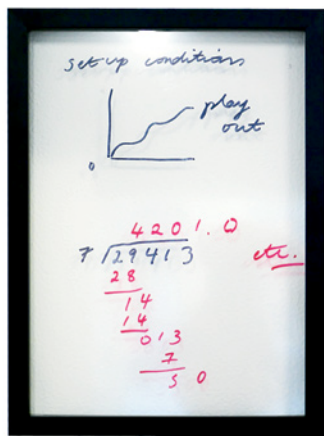 set-up conditions
play
out
0
4201.0
7 29413
etc.
28
14
14
013
7
50